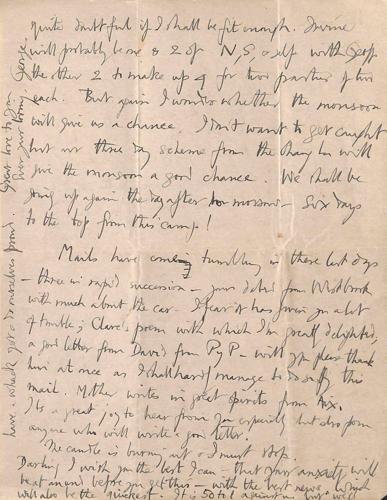 quite doubtful if I shall be fit enough. Irvine
will probably be one & 2 of N, S, & self with Geoff
the other 2 to make up 4 for two parties of two
each. But again I wonder whether the monsoon
will give us a chance. I don't want to get caught
but our three day scheme from the Chang La will
give the monsoon a good chance. We shall be
going up again the day after to-morrow. Six days
to the top from this camp!
Mails have come tumbling in these last days
- three in rapid succession - yours dated from Westbrook
with much about the car. I fear it has given you a lot
of trouble; Clare's poem with which I'm greatly delighted,
a good letter from David from PyP - will you please thank
him at once as I shall hardly manage to do so by this
mail. Mother writes in great spirits from Aix.
It's a great joy to hear from you especially but also from
anyone who will write a good letter.
The candle is burning out & I must stop.
Darling I wish you the best I can - that your anxiety will
be at an end before you get this - with the best news. Which
will also be the quickest. It is 50 to 1 against us but we'll
have a whack yet & do ourselves proud.
Great love to you
Ever your loving, George.